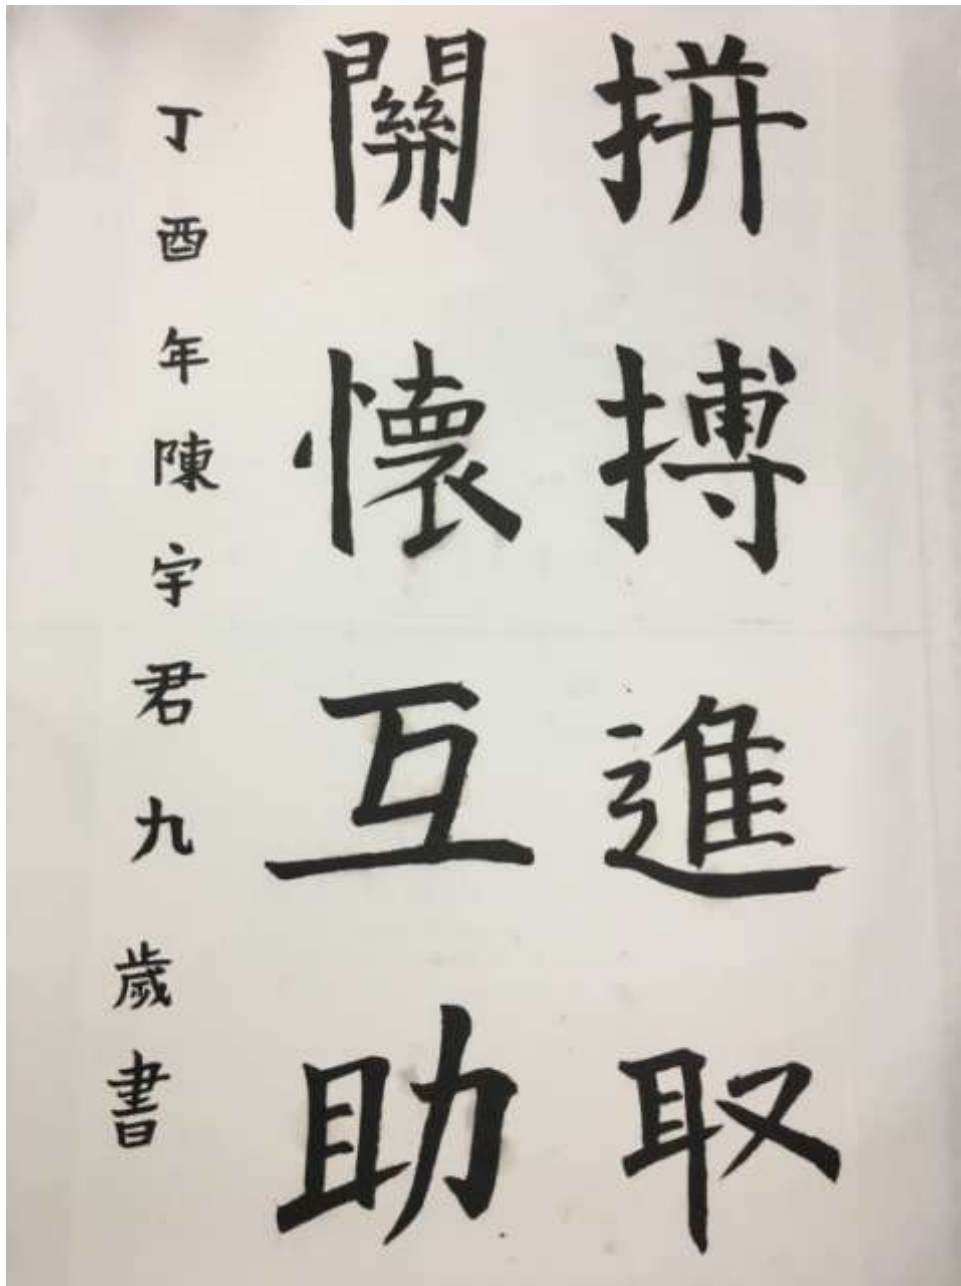 拼搏進取
關懷互助
丁酉年陳宇君九歲書